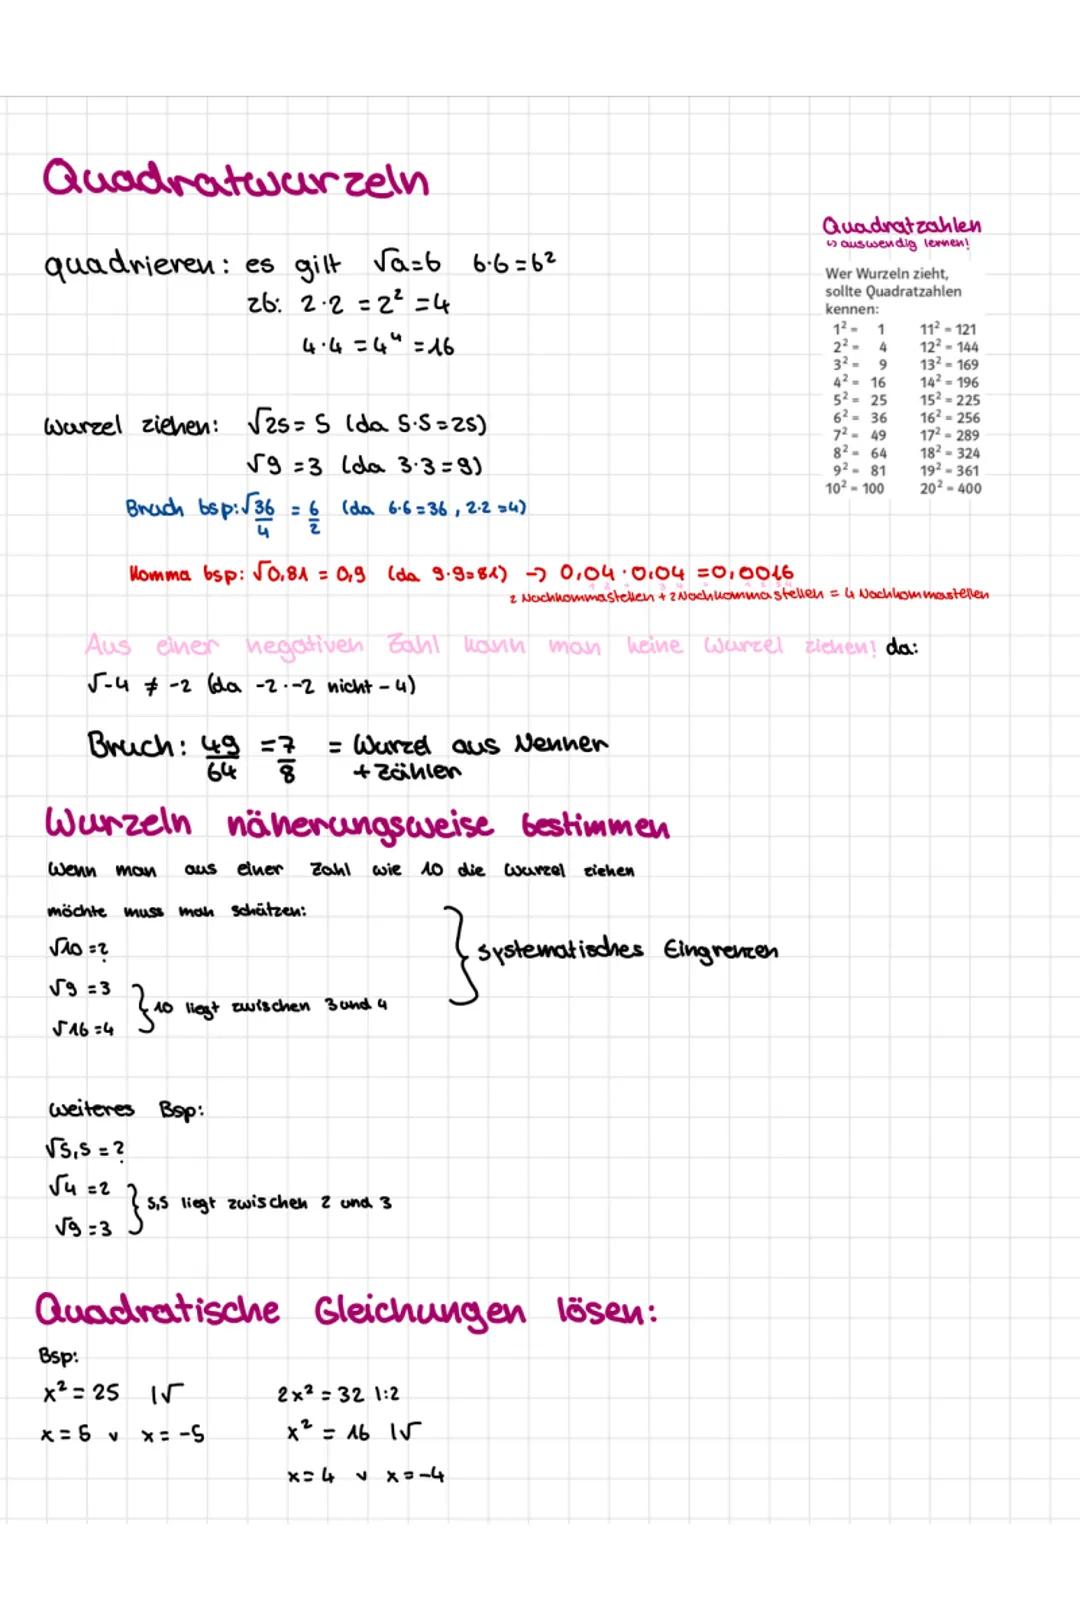 Quadratwurzeln
quadrieren: es gilt √a=b b·b=b²
zb: 2·2 = 2² = 4
4·4 = 4⁴ = 16
Quadratzahlen
↳ auswendig lernen!
Wer Wurzeln zieht,
sollte Quadratzahlen
kennen:
1² = 1 11² = 121
2² = 4 12² = 144
3² = 9 13² = 169
4² = 16 14² = 196
5² = 25 15² = 225
6² = 36 16² = 256
7² = 49 17² = 289
8² = 64 18² = 324
9² = 81 19² = 361
10² = 100 20² = 400
Wurzel ziehen: √25 = 5 (da 5·5=25)
√9 = 3 (da 3·3=9)
Bruch bsp: √36/4 = 6/2 (da 6·6=36, 2·2=4)
Komma bsp: √0,81 = 0,9 (da 9·9=81) → 0,04 · 0,04 = 0,0016
2 Nachkommastellen + 2 Nachkommastellen = 4 Nachkommastellen
Aus einer negativen Zahl kann man keine Wurzel ziehen! da:
√-4 ≠ -2 (da -2·-2 nicht -4)
Bruch: 49/64 = 7/8 = Wurzel aus Nenner
+ Zähler
Wurzeln näherungsweise bestimmen
Wenn man aus einer Zahl wie 10 die Wurzel ziehen
möchte muss man schätzen:
√10 = ?
} systematisches Eingrenzen
√9 = 3
} 10 liegt zwischen 3 und 4
√16 = 4
weiteres Bsp:
√5,5 = ?
√4 = 2
} 5,5 liegt zwischen 2 und 3
√9 = 3
Quadratische Gleichungen lösen:
Bsp:
x² = 25 |√ 2x² = 32 |:2
x = 5 v x = -5 x² = 16 |√
x = 4 v x = -4